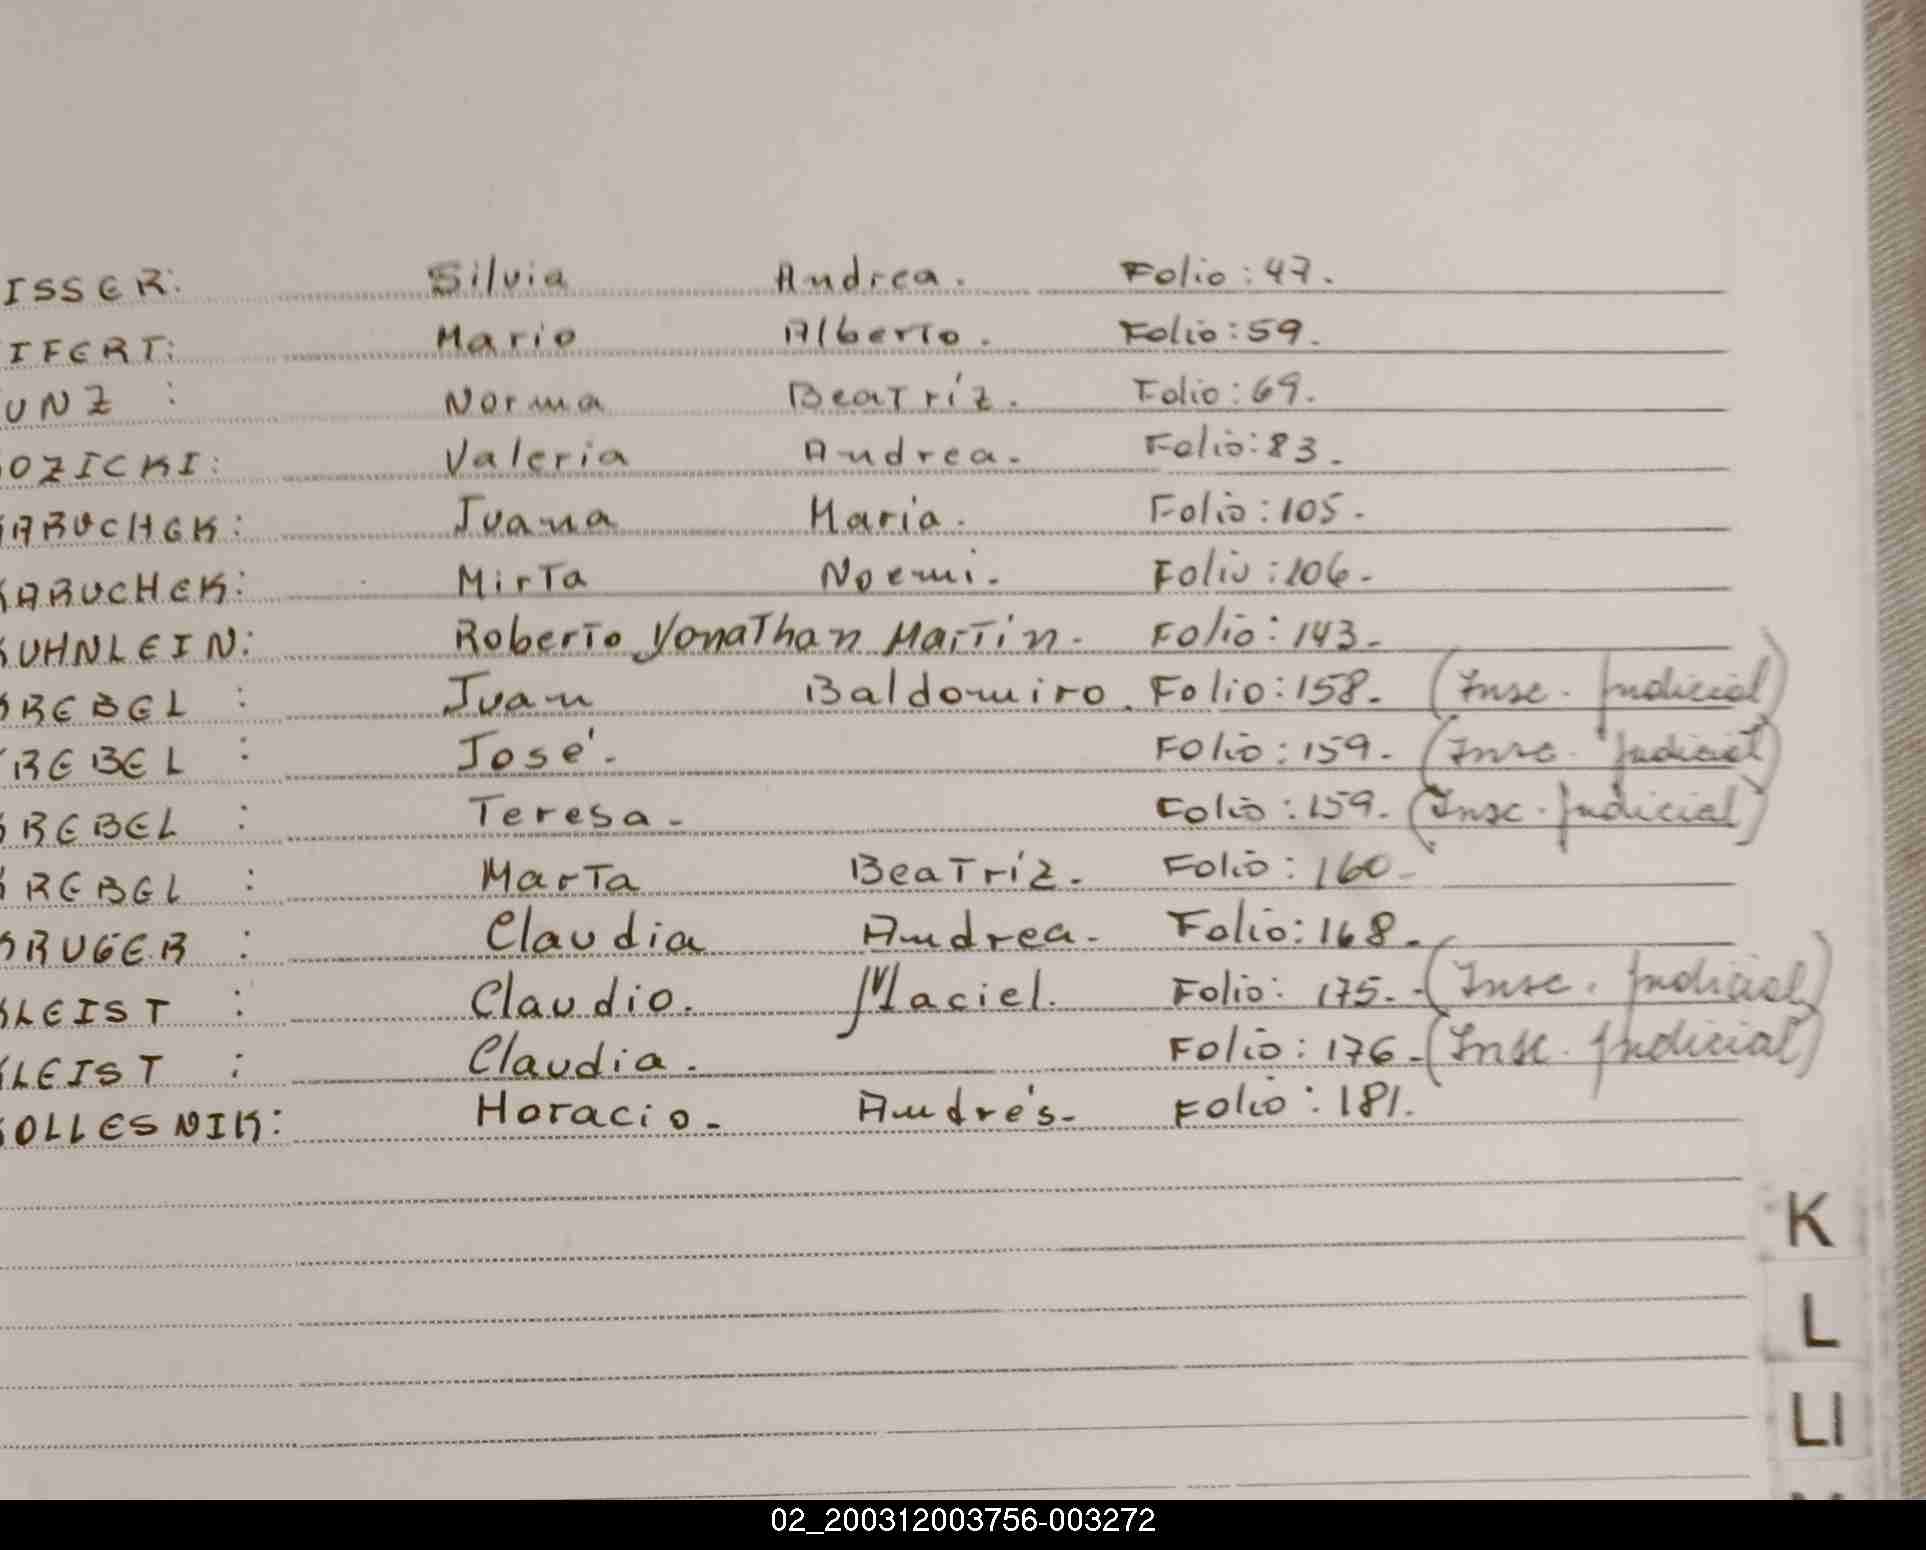 ISSER: Silvia Andrea. Folio: 47.
IFERT: Mario Alberto. Folio: 59.
UNZ : Norma Beatríz. Folio: 69.
OZICKI: Valeria Andrea. Folio: 83.
KARUCHEK: Juana Maria. Folio: 105.
KARUCHEK: Mirta Noemi. Folio: 106.
KUHNLEIN: Roberto Yonathan Martin. Folio: 143.
KREBEL : Juan Baldomiro. Folio: 158. (Insc. Judicial)
KREBEL : José. Folio: 159. (Insc. Judicial)
KREBEL : Teresa. Folio: 159. (Insc. Judicial)
KREBEL : Marta Beatríz. Folio: 160.
KRUGER : Claudia Andrea. Folio: 168.
KLEIST : Claudio. Maciel. Folio: 175. (Insc. Judicial)
KLEIST : Claudia. Folio: 176. (Insc. Judicial)
KOLLESNIK: Horacio. Andrés. Folio: 181.
K
L
Ll
02_200312003756-003272